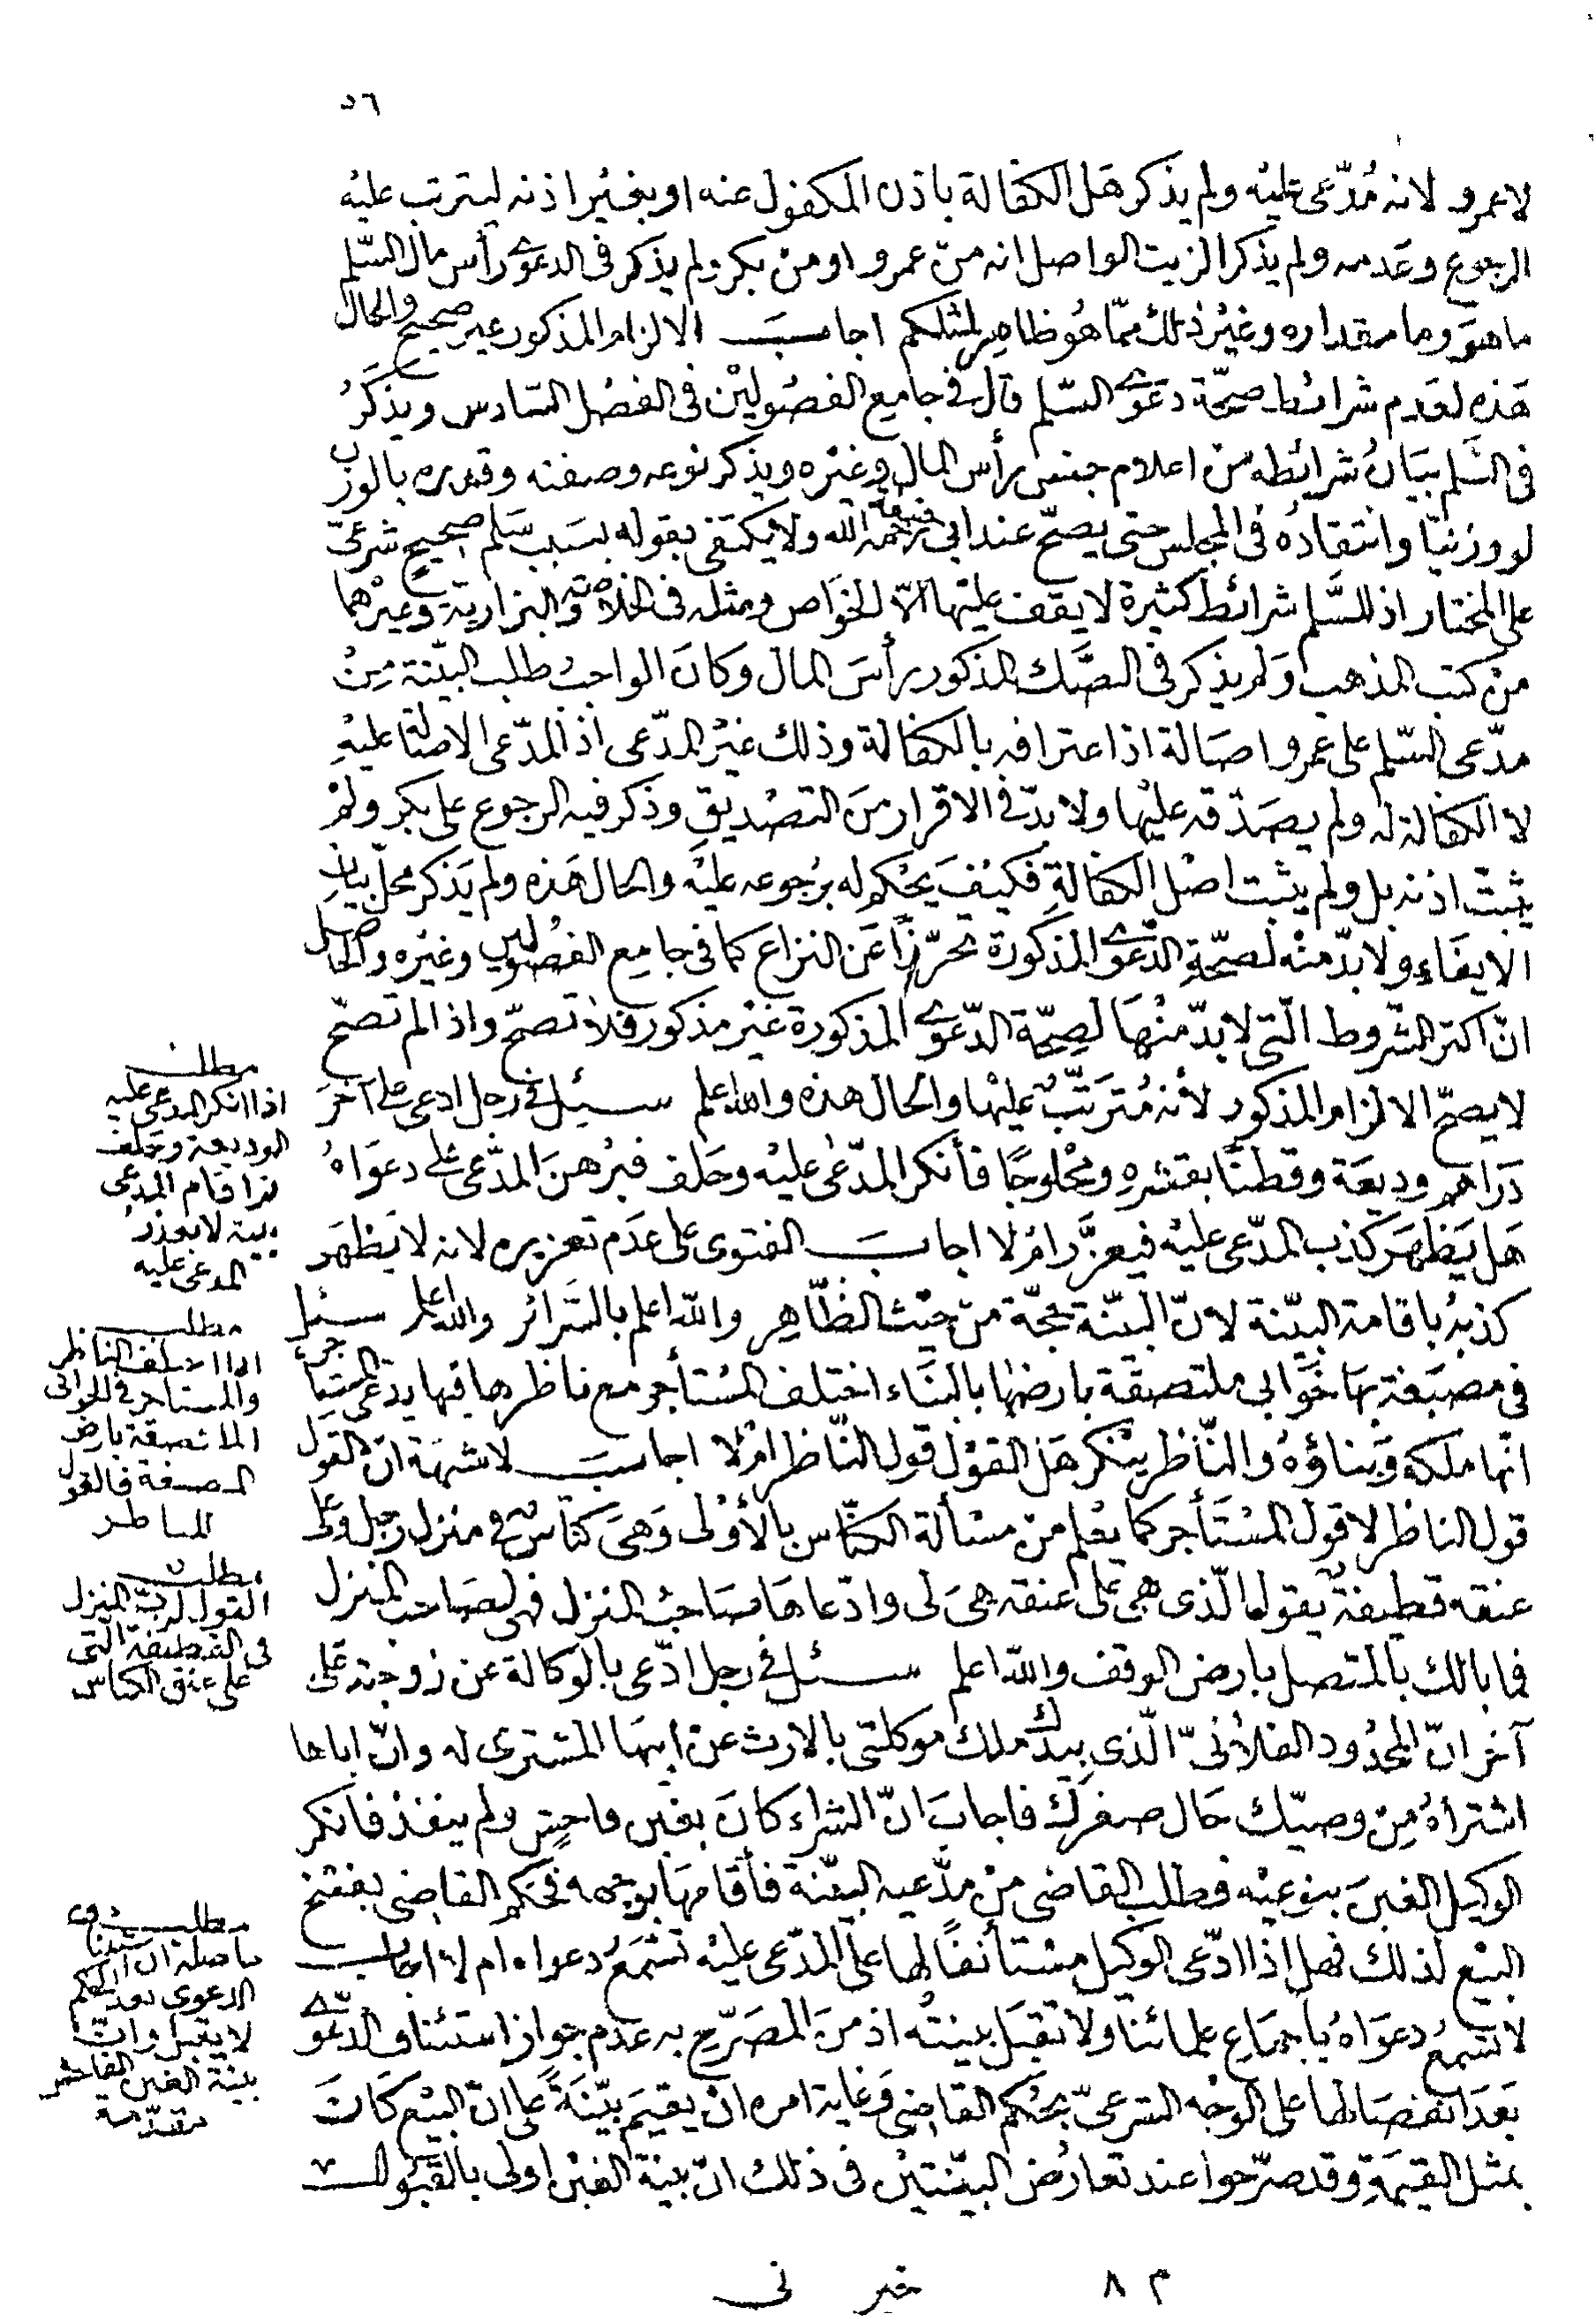 ٥٦
لا عمرو لانه مُدّعى عليْه ولم يذكر هَل الكفالة باذن المكفول عنه او بغيْر اذنه ليترتب عليْه
الرجوع وعَدمه ولم يذكر الزيت الواصل انه منْ عمرو او منْ بكر ولم يذكر فى الدعوى رأس مال السّلم
ما هوَ وما مقداره وغيْر ذلك ممّا هُو ظاهر لمثلكم اجاب الالزام المذكور غير صحيح والحال
هَذه لعَدم شرائط صحّة دعوَى السّلم قال فى جامع الفصُوليْن فى الفصْل السّادس ويذكرُ
فى السَّلم بيَانُ شرائطه من اعلام جنس رأس المال وغيْره ويذكر نوعه وصفته وقدره بالوزن
لو وزنيّا وانتقادهُ فى المجلس حتى يصحّ عند ابى حنيفة رحمه الله ولا يكتفى بقوله بسَبب سَلم صحيح شرعىّ
على المختار اذ للسَّلم شرائط كثيرة لا يقف عليْها الاّ الخوَاص ومثله فى الخلاصة والبزازية وغيْرهما
منْ كتب المذهب وَلم يذكر فى الصَّك المذكور رأسَ المال وكانَ الواجبُ طلب البيّنة مِنْ
مدّعى السّلم على عمرو اصَالة اذ اعترافه بالكفالة وذلك غيْر المدّعى اذ المدّعى الاصَالة عليْهِ
لا الكفالة له ولم يصَدّقه عليْها ولا بدّ فى الاقرار منَ التصْديقِ وذكر فيه الرجوع على بكر ولمْ
يثبتْ اذنه بل ولم يثبت اصْل الكفالةِ فكيْفَ يحْكم له برُجوعه عليْه والحال هَذه ولم يَذكر محلّ بيان
الايفَاءِ ولا بدّ منْه لصحّةِ الدّعوى المذكورة تحرّزاً عَن النزاع كما فى جامع الفصُولين وغيْره والحاصل
انّ اكثر الشّروط الّتى لا بدّ منْهَا لصِحّة الدّعوى المذكورة غيْر مذكور فلا تصحّ واذا لم تصحّ
لا يصحّ الالزام المذكور لأنه مُترَتّبٌ عليْها والحال هذه والله اعلم سئل فى رجل ادعى على آخرَ
دَراهم وديعَة وقطنًا بقشْرهِ ومحْلوجًا فأنكر المدّعى عليْه وحَلف فبرْهنَ المدّعى على دعوَاهُ
هَل يَظهَر كذب المدّعى عليْه فيعزَّر امْ لا اجابَ الفتوى على عَدَم تعزيره لانه لا يَظهَر
كذبهُ باقامة البيّنة لانّ البيّنة حجّة منْ حيْث الظّاهِر والله اعلم بالسّرائر والله اعلم سئل
فى مصبَغة بهَا خوَابى ملتصقة بارضهَا بالبنَاء اختلف المُستأجر مع ناظرها فيها يدعى المستأجر
انّها ملكه وَبناؤهُ والنّاظر ينْكر هَل القوْل قول النّاظر امْ لا اجاب لا شبهَة انّ القوْل
قول الناظر لا قول المسْتَأجر كما يعْلم منْ مسْألة الكنّاس بالأوْلى وَهىَ كنّاسٌ فى منزل رَجل وَعلى
عنقه قطيفةٌ يقول الّذى هىَ على عنقه هىَ لى وادّعاهَا صَاحبُ المنزل فهى لصَاحب المنزل
فما بالك بالمتصل بارض الوقف والله اعلم سئل فى رجل ادّعى بالوكالة عن زوجته على
آخر انّ المحْدُود الفلانىّ الّذى بيدك ملك موكلتى بالارث عنْ ابيهَا المشترى له وانّ اباها
اشتراهُ مِنْ وصيّك حَال صغرك فاجابَ انّ الشراء كانَ بغبن فاحش ولم ينفذ فانكر
الوكيل الغبنَ بنوعيْه فطلب القاضى منْ مدّعيه البيّنة فأقامهَا بوجهه فحَكم القاضى بفسْخ
البيْع لذلك فهل اذا ادّعى الوكيل مسْتأنفاً لها على المدّعى عليْه تسْمَعُ دعواه ام لا اجاب
لا تسْمعُ دعوَاهُ بأجماع علمائنا ولا تقبَل بيّنتُه اذ منَ المصَرّح به عَدم جواز استئناف الدّعوى
بَعدَ انفصَالها على الوجْه الشرعىّ بحُكم القاضى وَغاية امره انْ يقيمَ بيّنَةً على انّ البيْع كانَ
بمثل القيمَةِ وقد صرّحوا عند تعارُض البيّنتيْن فى ذلك انّ بيّنةَ الغبْن اولى بالقبُول
مطلب
اذا انكر المدعى عليه
الوديعة وحلف
ثم اقام المدعى
بينة لا يعزر
المدعى عليه
مطلب
اذا اختلف الناظر
والمستاجر فى الخوابى
الملتصقة بارض
المصبغة فالقول
للناظر
مطلب
القول لرب المنزل
فى القطيفة التى
على عنق الكناس
مطلب
حاصله ان استئناف
الدعوى بعد الحكم
لا يقبل وانّ
بينة الغبن الفاحش
مقدّمة
م ٨ خير نى